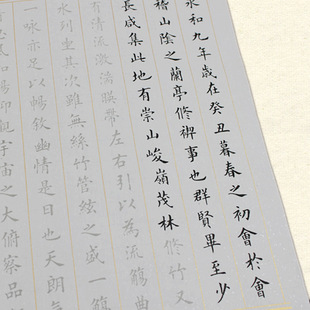 永和九年歲在癸丑暮春之初會於會
稽山陰之蘭亭修禊事也群賢畢至少
長咸集此地有崇山峻嶺茂林修竹又
有清流激湍暎帶左右引以為流觴曲
水列坐其次雖無絲竹管絃之盛一觴
一詠亦足以暢敘幽情是日也天朗氣
風和暢仰觀宇宙之大俯察品